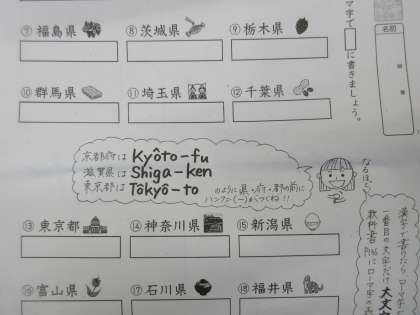 ⑦ 福島県
⑧ 茨城県
⑨ 栃木県
⑩ 群馬県
⑪ 埼玉県
⑫ 千葉県
京都府は Kyôto-fu
滋賀県は Shiga-ken
東京都は Tôkyô-to
のように県・府・都の前に
ハイフン(-)がつくね!!
なるほど
⑬ 東京都
⑭ 神奈川県
⑮ 新潟県
⑯ 富山県
⑰ 石川県
⑱ 福井県
マ字で
に書きましょう。
名前
漢字で書いたら
一番目の文字だけ大文字
教科書
にローマ字の表